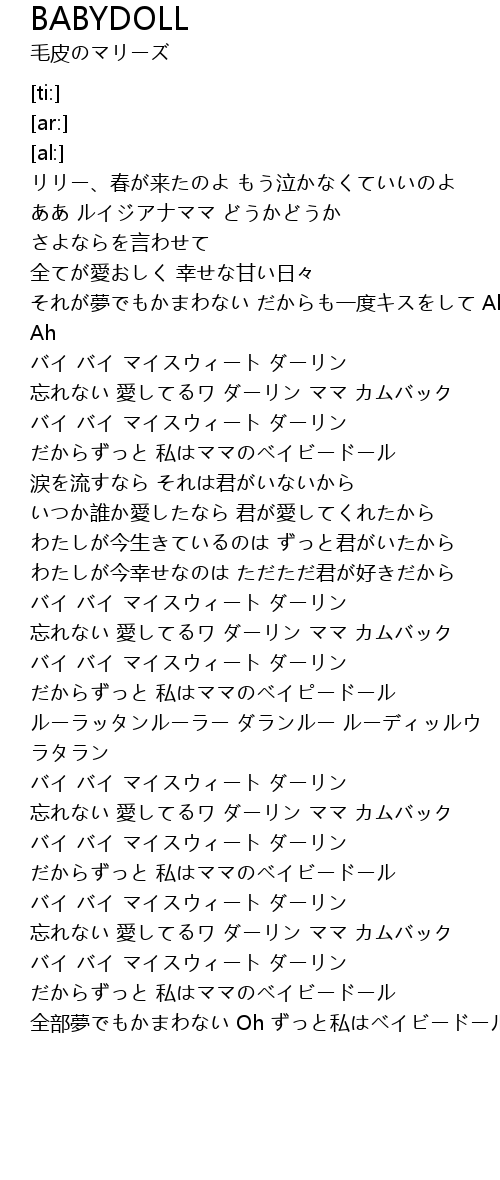 BABYDOLL
毛皮のマリーズ
[ti:]
[ar:]
[al:]
リリー、春が来たのよ もう泣かなくていいのよ
ああ ルイジアナママ どうかどうか
さよならを言わせて
全てが愛おしく 幸せな甘い日々
それが夢でもかまわない だからも一度キスをして
Ah
バイ バイ マイスウィート ダーリン
忘れない 愛してるワ ダーリン ママ カムバック
バイ バイ マイスウィート ダーリン
だからずっと 私はママのベイビードール
涙を流すなら それは君がいないから
いつか誰か愛したなら 君が愛してくれたから
わたしが今生きているのは ずっと君がいたから
わたしが今幸せなのは ただただ君が好きだから
バイ バイ マイスウィート ダーリン
忘れない 愛してるワ ダーリン ママ カムバック
バイ バイ マイスウィート ダーリン
だからずっと 私はママのベイビードール
ルーラッタンルーラー ダランルー ルーディッルウ
ラタラン
バイ バイ マイスウィート ダーリン
忘れない 愛してるワ ダーリン ママ カムバック
バイ バイ マイスウィート ダーリン
だからずっと 私はママのベイビードール
バイ バイ マイスウィート ダーリン
忘れない 愛してるワ ダーリン ママ カムバック
バイ バイ マイスウィート ダーリン
だからずっと 私はママのベイビードール
全部夢でもかまわない Oh ずっと私はベイビードール